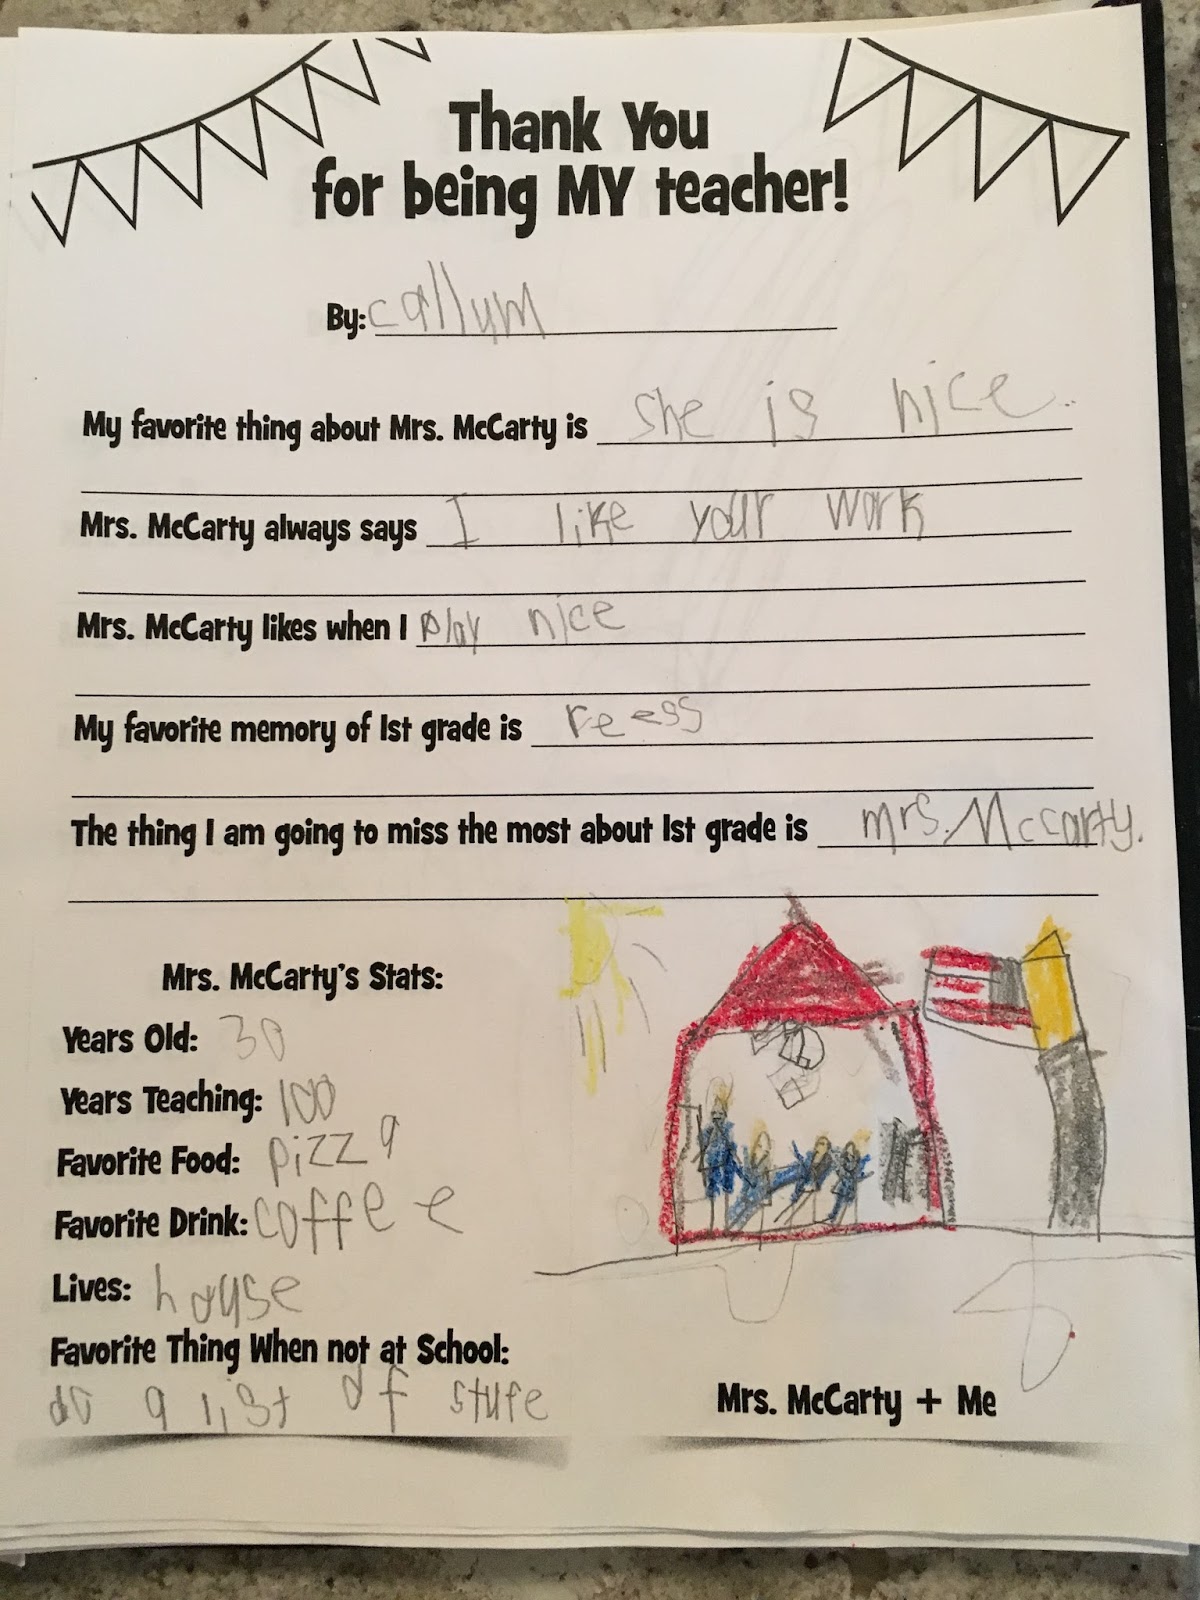 Thank You
for being MY teacher!
By: callum
My favorite thing about Mrs. McCarty is she is nice.
Mrs. McCarty always says I like your work
Mrs. McCarty likes when I play nice
My favorite memory of 1st grade is reess
The thing I am going to miss the most about 1st grade is mrs. Mccarty.
Mrs. McCarty's Stats:
Years Old: 30
Years Teaching: 100
Favorite Food: pizza
Favorite Drink: coffee
Lives: house
Favorite Thing When not at School:
do a list of stufe
Mrs. McCarty + Me